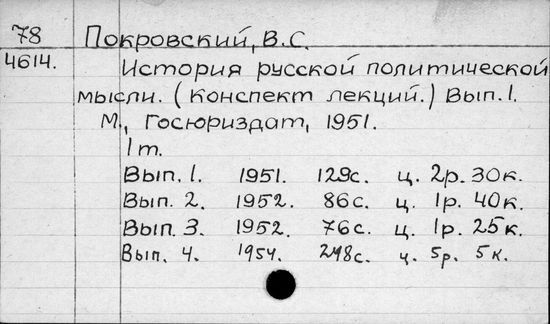 78
4614.
Покровский, В.С.
История русской политической
мысли. (Конспект лекций.) Вып. 1.
М., Госюриздат, 1951.
1 т.
Вып. 1. 1951. 129с. ц. 2р. 30к.
Вып. 2. 1952. 86с. ц. 1р. 40к.
Вып. 3. 1952. 76с. ц. 1р. 25к.
Вып. 4. 1954. 248с. ц. 5р. 5к.